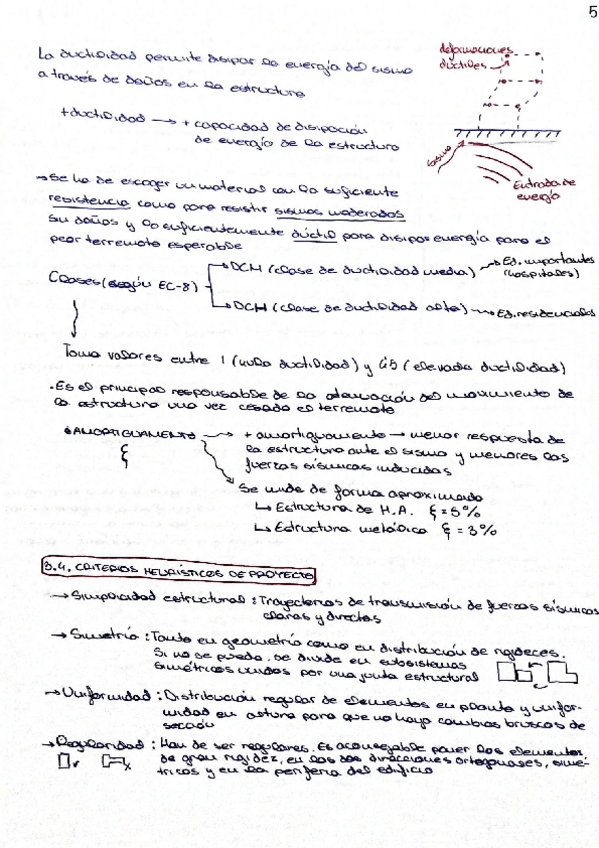 5
La ductilidad permite disipar la energía del sismo
a través de daños en la estructura
deformaciones
dúctiles
+ ductilidad → + capacidad de disipación
de energía de la estructura
sismo
Entrada de
energía
→ Se ha de escoger un material con la suficiente
resistencia como para resistir sismos moderados
sin daños y lo suficientemente dúctil para disipar energía para el
peor terremoto esperable
Clases (según EC-8)
DCM (clase de ductilidad media) → Ed. importantes
(hospitales)
DCH (clase de ductilidad alta) → Ed. residenciales
Toma valores entre 1 (nula ductilidad) y 6,5 (elevada ductilidad)
· Es el principal responsable de la atenuación del movimiento de
la estructura una vez cesado el terremoto
AMORTIGUAMIENTO → + amortiguamiento → menor respuesta de
ξ
la estructura ante el sismo y menores las
fuerzas sísmicas inducidas
Se mide de forma aproximada
↳ Estructura de H.A. ξ = 5%
↳ Estructura metálica ξ = 3%
3.4. CRITERIOS HEURÍSTICOS DE PROYECTO
→ Simplicidad estructural : Trayectorias de transmisión de fuerzas sísmicas
claras y directas
→ Simetría : Tanto en geometría como en distribución de rigideces.
Si no se puede, se divide en subsistemas
simétricos unidos por una junta estructural
→ Uniformidad : Distribución regular de elementos en planta y unifor-
midad en altura para que no haya cambios bruscos de
sección
→ Regularidad : Han de ser regulares. Es aconsejable poner los elementos
de gran rigidez, en las dos direcciones ortogonales, simé-
tricos y en la periferia del edificio